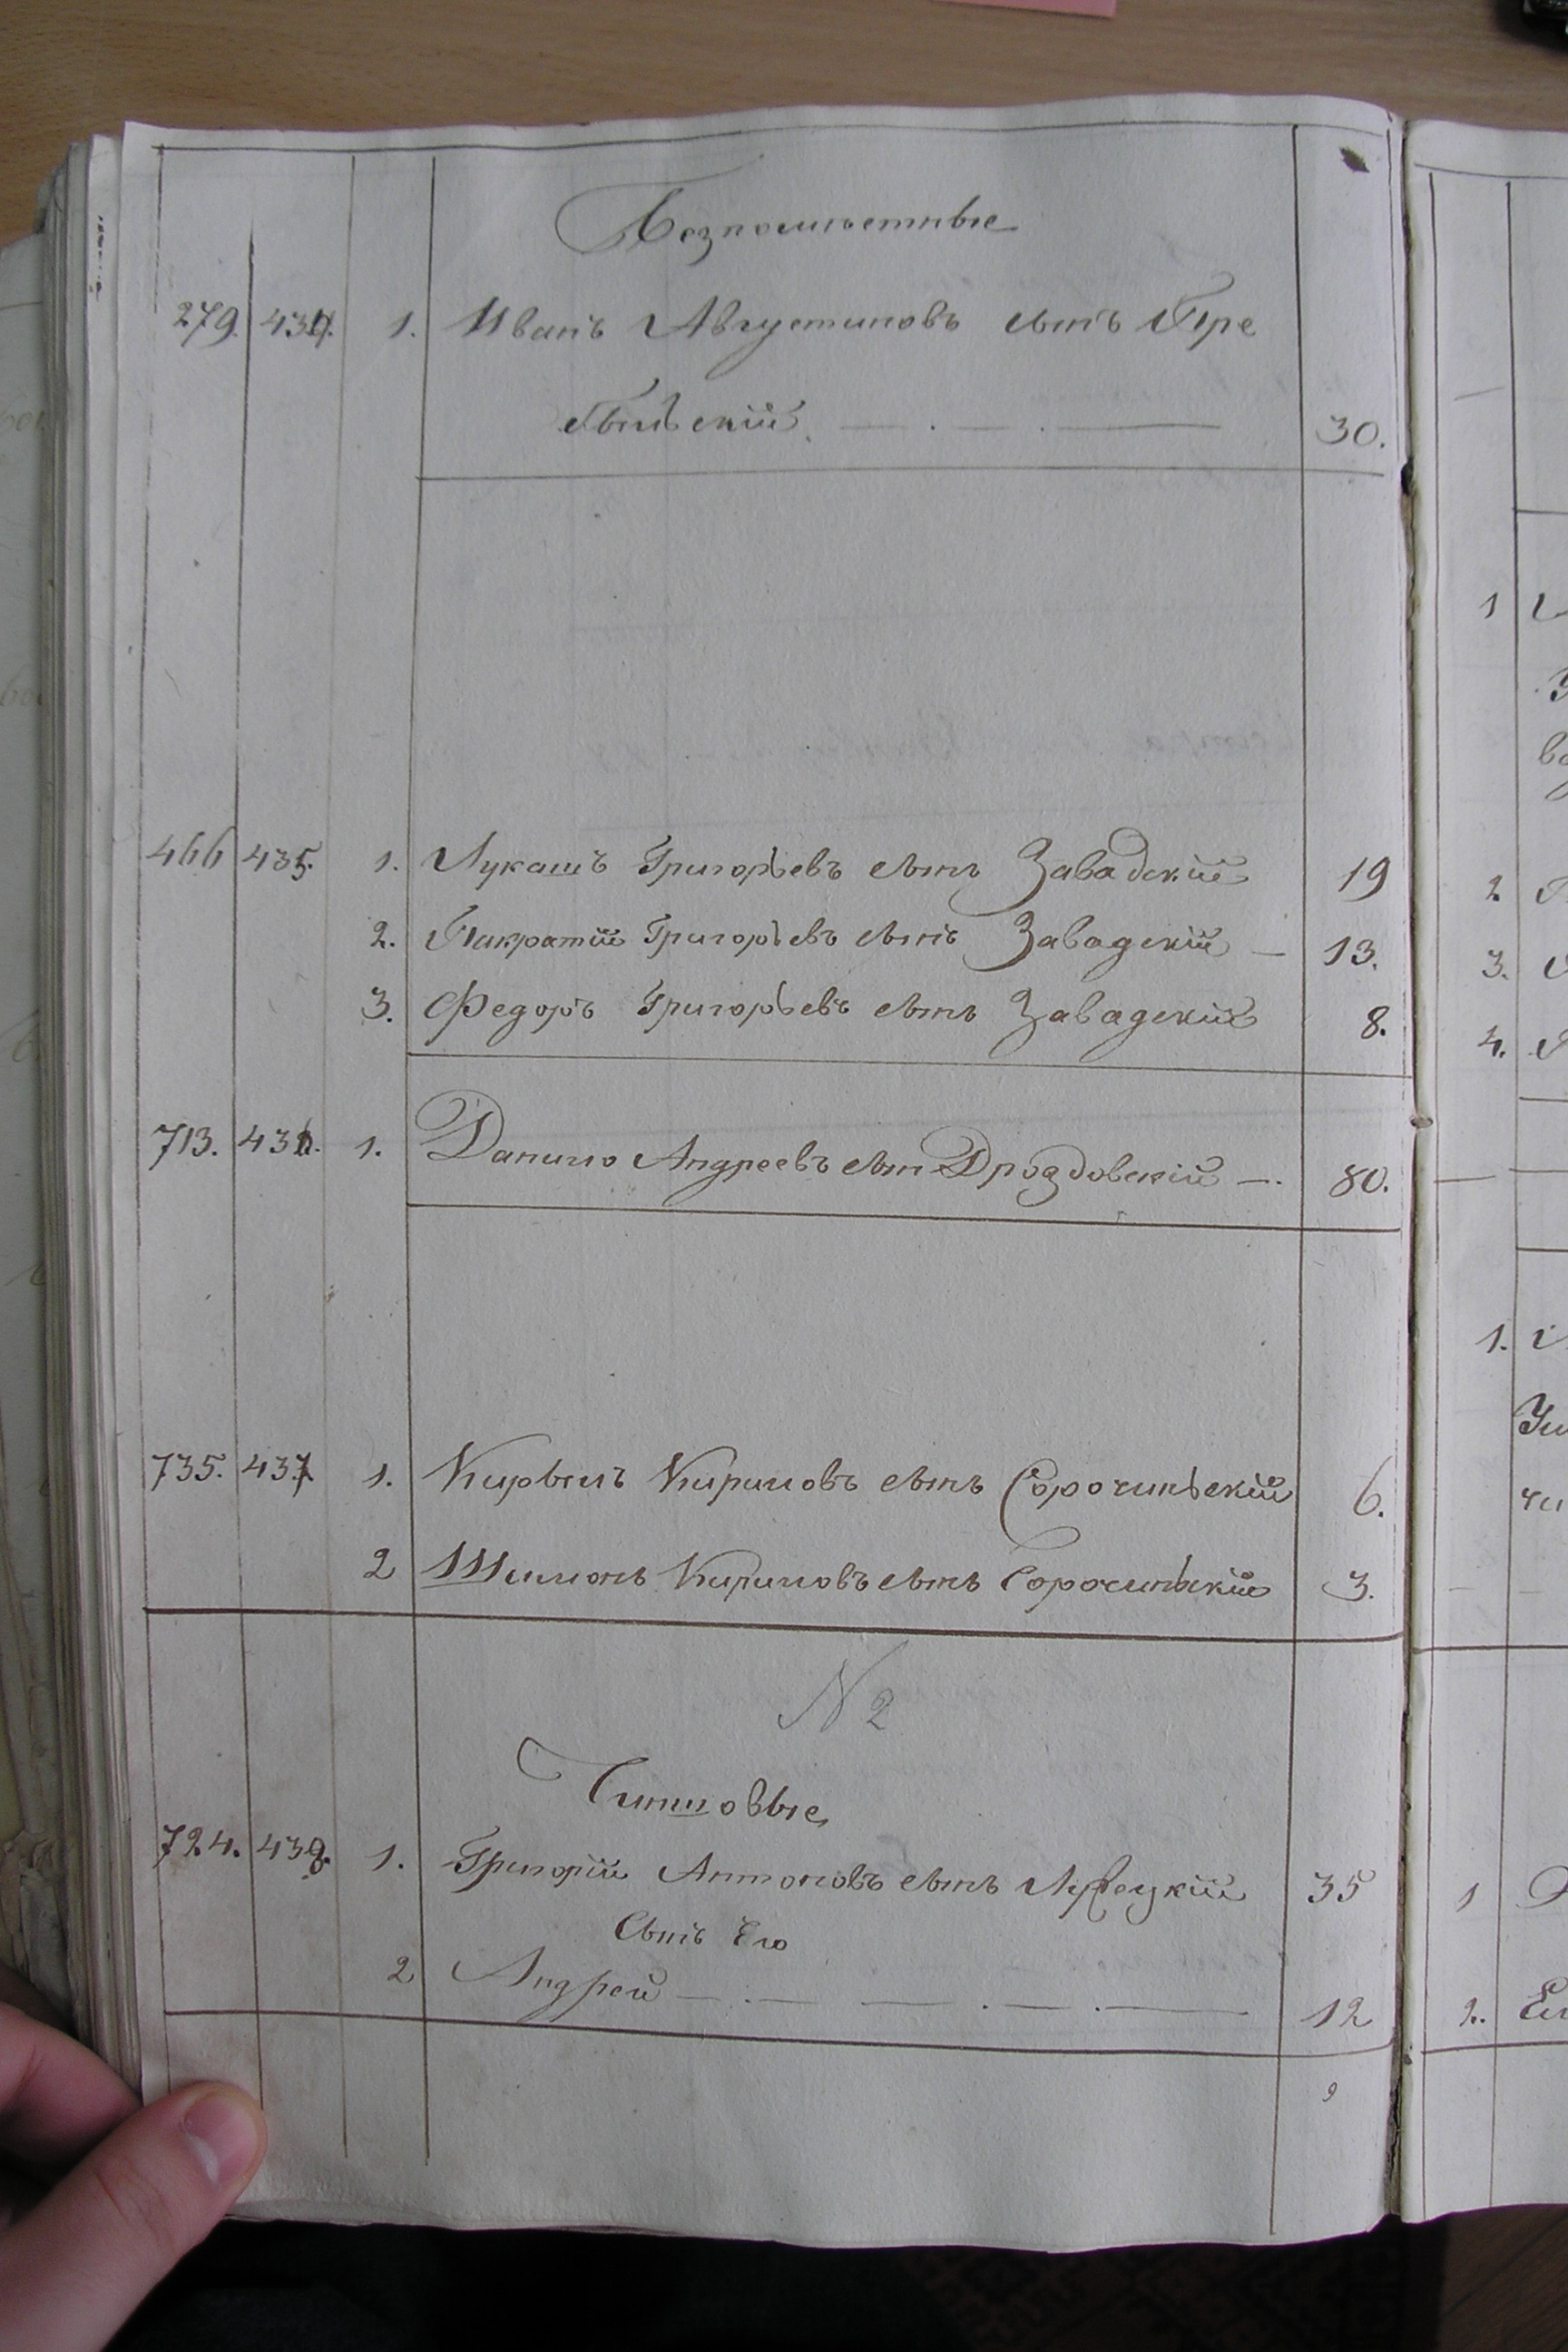 Безпомѣстные
279. 434. 1. Иванъ Августиновъ сынъ Пре
сѣкій. — . — . — 30.
466 435. 1. Лукашъ Григорьевъ сынъ Завадскій 19
2. Панкратій Григорьевъ сынъ Завадскій — 13.
3. Федоръ Григорьевъ сынъ Завадскій 8.
713. 436. 1. Данило Андреевъ сын Дроздовскій —. 80.
735. 437 1. Кирылъ Кириловъ сынъ Сорочинскій 6.
2 Шимонъ Кириловъ сынъ Сорочинскій 3.
N 2
Чиншовые
724. 438. 1. Григорій Антоновъ сынъ 35
Сынъ Его
2 Андрей — . — — . — . — 12
1
2.
3.
4.
1.
1
2.